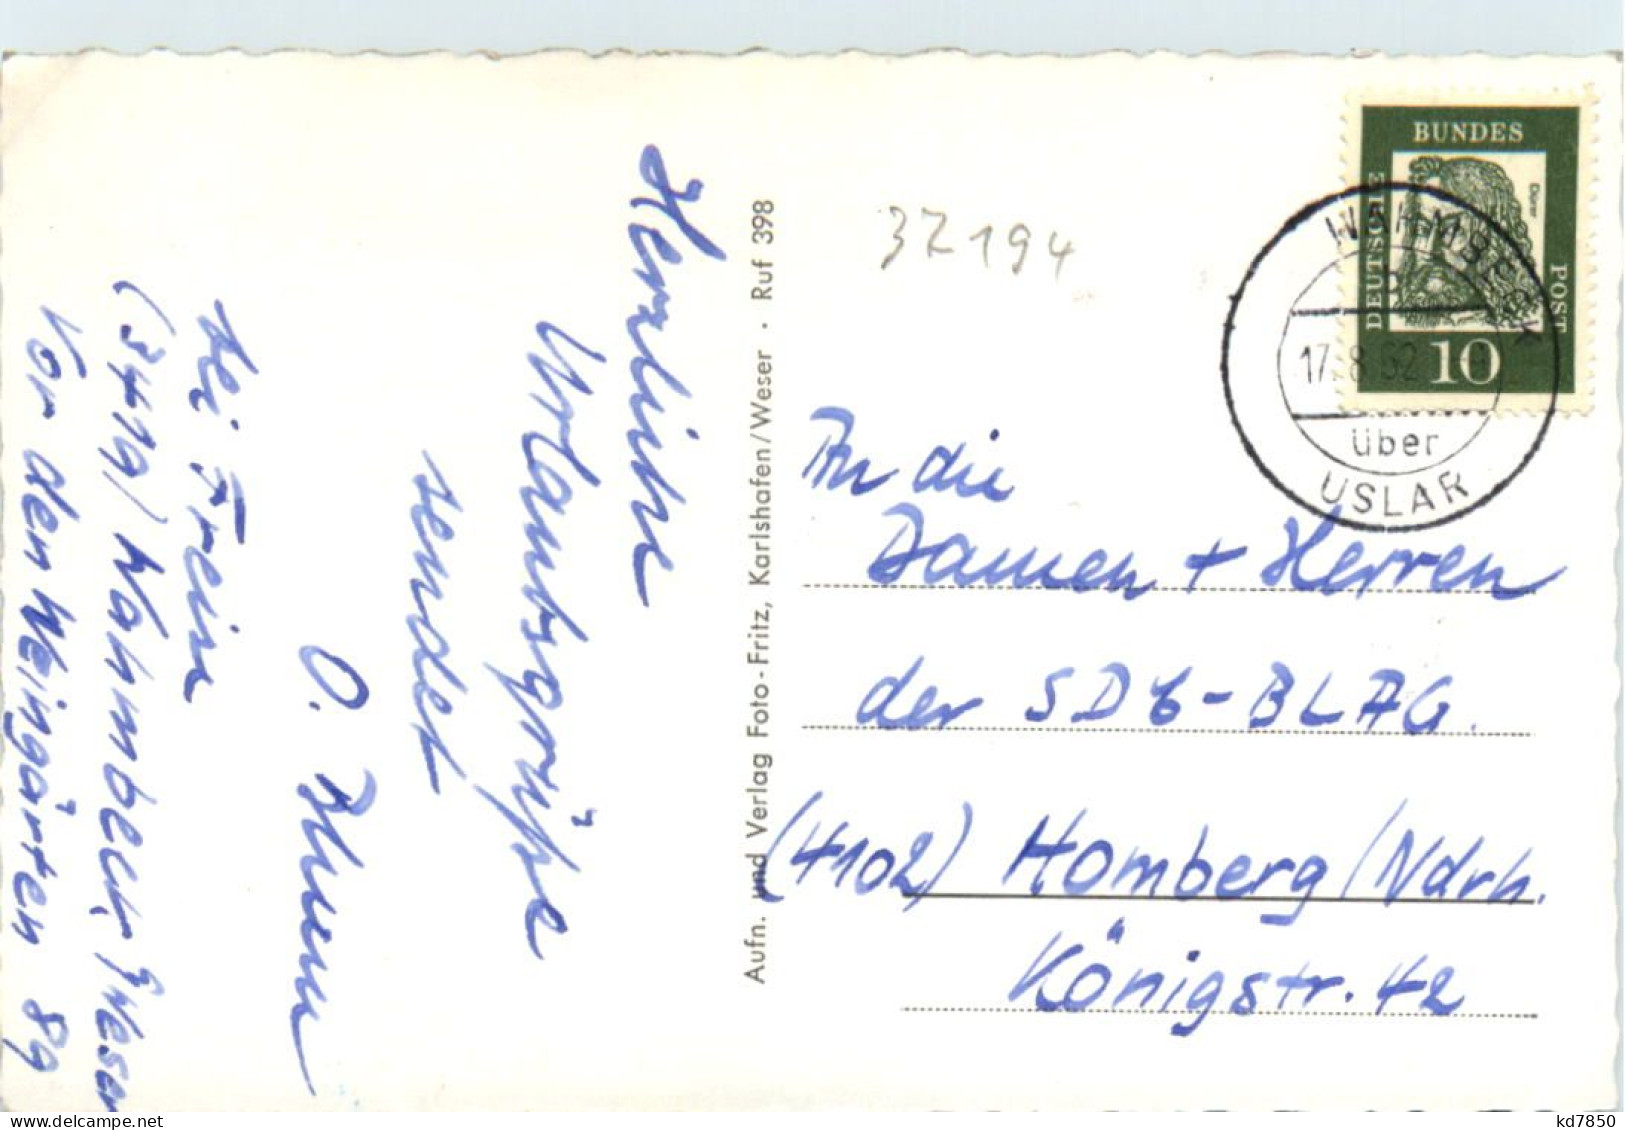 Herzliche
Urlaubsgrüße
sendet
bei Frein
(3419) Wahmbeck/Weser
Vor den Weingärten 89
Aufn. und Verlag Foto-Fritz, Karlshafen/Weser · Ruf 398
37194
BUNDES
DEUTSCHE
POST
Dürer
10
WAHMBECK
b
17.8.62
über
USLAR
An die
Damen + Herren
der SDB-BLAG.
(4102) Homberg/Ndrh.
Königstr. 42
delcampe.net
kd7850